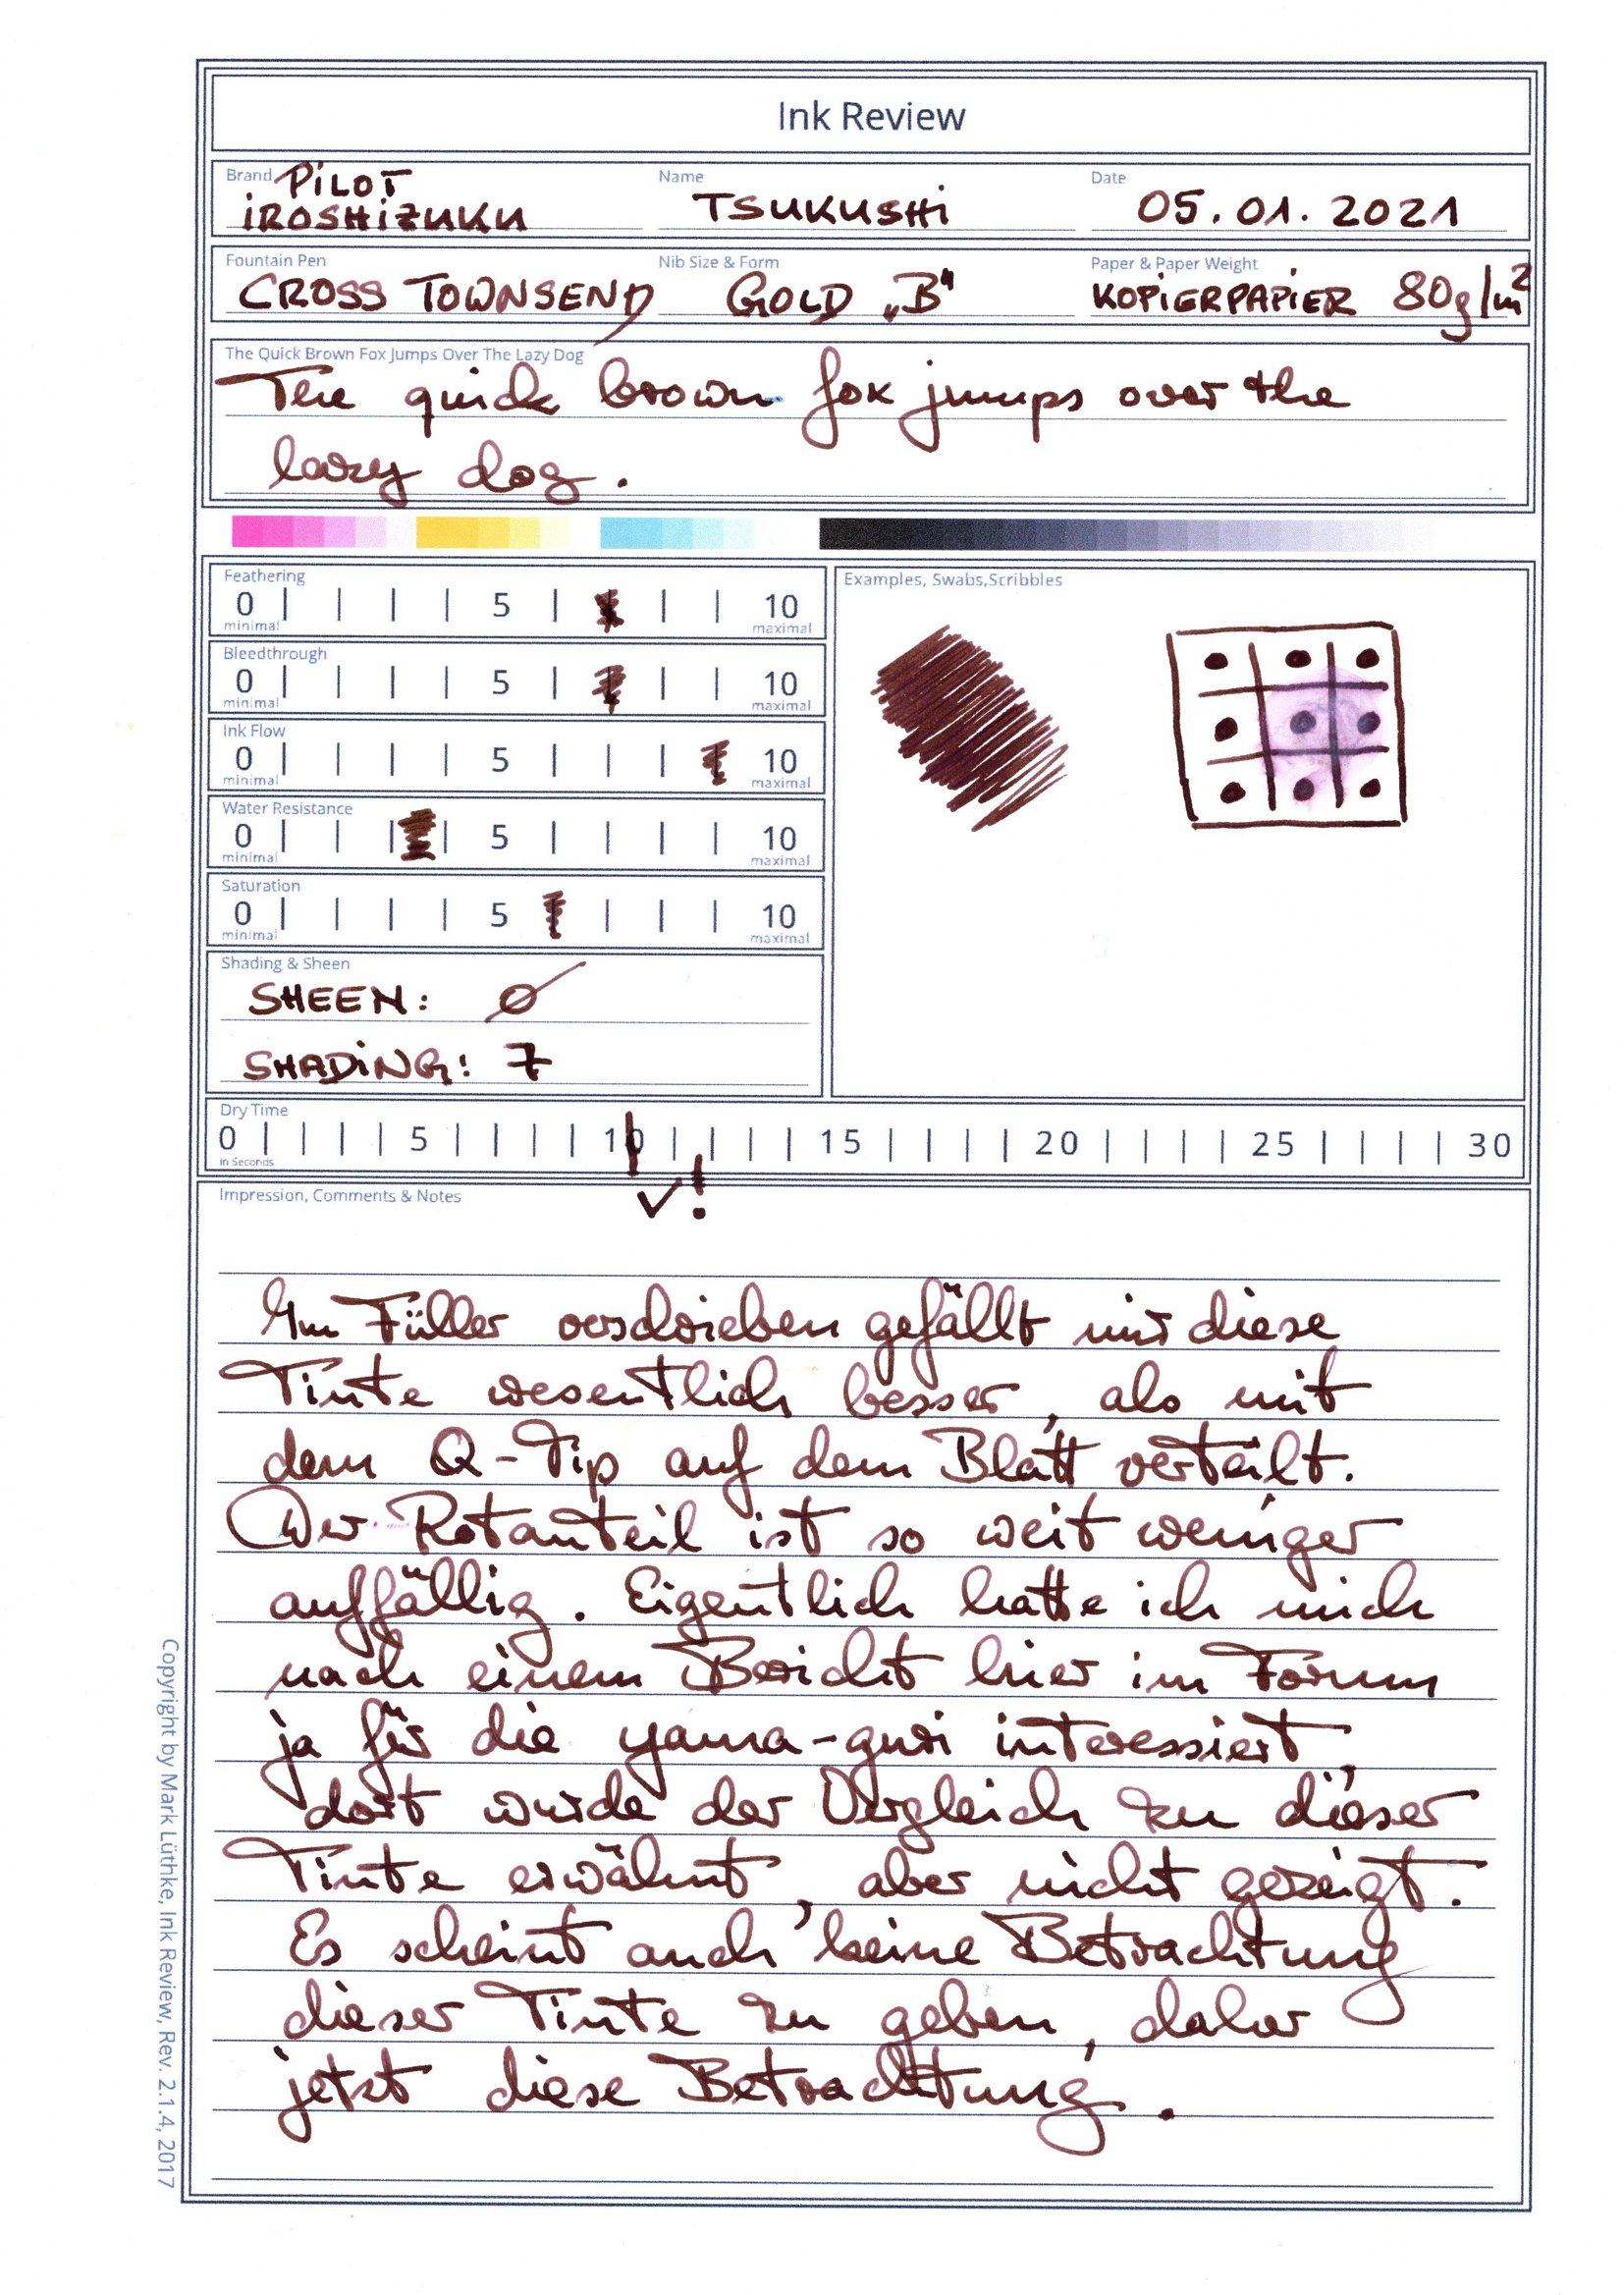 Ink Review
Brand Name Date
PILOT
IROSHIZUKU TSUKUSHI 05.01.2021
Fountain Pen Nib Size & Form Paper & Paper Weight
CROSS TOWNSEND GOLD „B" KOPIERPAPIER 80g/m²
The Quick Brown Fox Jumps Over The Lazy Dog
The quick brown fox jumps over the
lazy dog.
Feathering
0 5 10
minimal maximal
Bleedthrough
0 5 10
minimal maximal
Ink Flow
0 5 10
minimal maximal
Water Resistance
0 5 10
minimal maximal
Saturation
0 5 10
minimal maximal
Shading & Sheen
SHEEN: Ø
SHADING: 7
Examples, Swabs,Scribbles
Dry Time
0 5 10 15 20 25 30
in Seconds
✓!
Impression, Comments & Notes
Im Füller verschrieben gefällt mir diese
Tinte wesentlich besser, als mit
dem Q-Tip auf dem Blatt verteilt.
Der Rotanteil ist so weit weniger
auffällig. Eigentlich hatte ich mich
nach einem Bericht hier im Forum
ja für die yama-guri interessiert,
dort wurde der Vergleich zu dieser
Tinte erwähnt, aber nicht gezeigt.
Es scheint auch keine Betrachtung
dieser Tinte zu geben, daher
jetzt diese Betrachtung.
Copyright by Mark Lüthke, Ink Review, Rev. 2.1.4, 2017